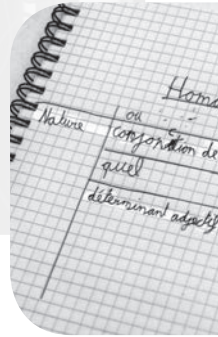 Homo
Nature
ou
conjonction de
quel
déterminant adjectif